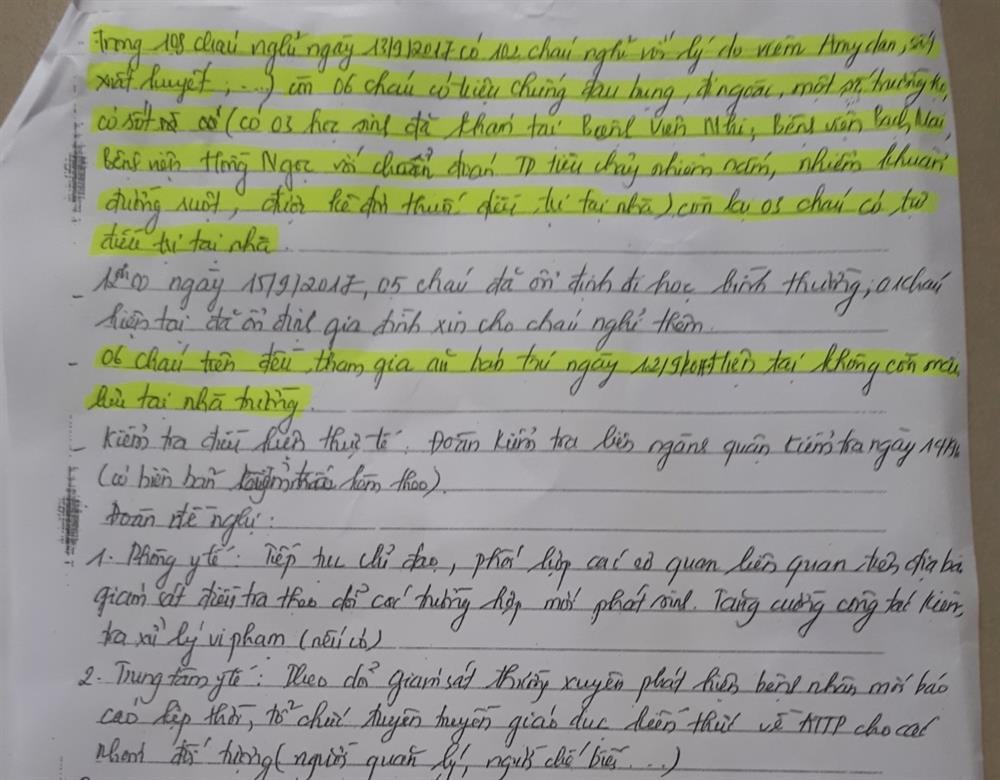 - Trong 108 cháu nghỉ ngày 13/9/2017 có 102 cháu nghỉ với lý do viêm Amydan, sốt
xuất huyết, ...) còn 06 cháu có triệu chứng đau bụng, đi ngoài, một số trường hợp
có sốt (có 03 học sinh đã khám tại Bệnh Viện Nhi, Bệnh viện Bạch Mai,
Bệnh viện Hồng Ngọc với chẩn đoán TD tiêu chảy nhiễm nấm, nhiễm khuẩn
đường ruột, được kê đơn thuốc điều trị tại nhà) còn lại 03 cháu có tự
điều trị tại nhà.
- 12h00 ngày 15/9/2017, 05 cháu đã ổn định đi học bình thường, 01 cháu
hiện tại đã ổn định gia đình xin cho cháu nghỉ thêm.
- 06 cháu trên đều tham gia ăn bán trú ngày 12/9/2017 hiện tại không còn mẫu
lưu tại nhà trường.
Kiểm tra điều kiện thực tế. Đoàn kiểm tra liên ngành quận kiểm tra ngày 14/9
(có biên bản kèm theo).
Đoàn đề nghị:
1. Phòng y tế: Tiếp tục chỉ đạo, phối hợp các cơ quan liên quan trên địa bà
giám sát điều tra theo dõi các trường hợp mới phát sinh. Tăng cường công tác kiểm
tra xử lý vi phạm (nếu có)
2. Trung tâm y tế: Theo dõi giám sát thường xuyên phát hiện bệnh nhân mới báo
cáo kịp thời, tổ chức tuyên truyền giáo dục kiến thức về ATTP cho các
nhóm đối tượng (người quản lý, người chế biến ...)